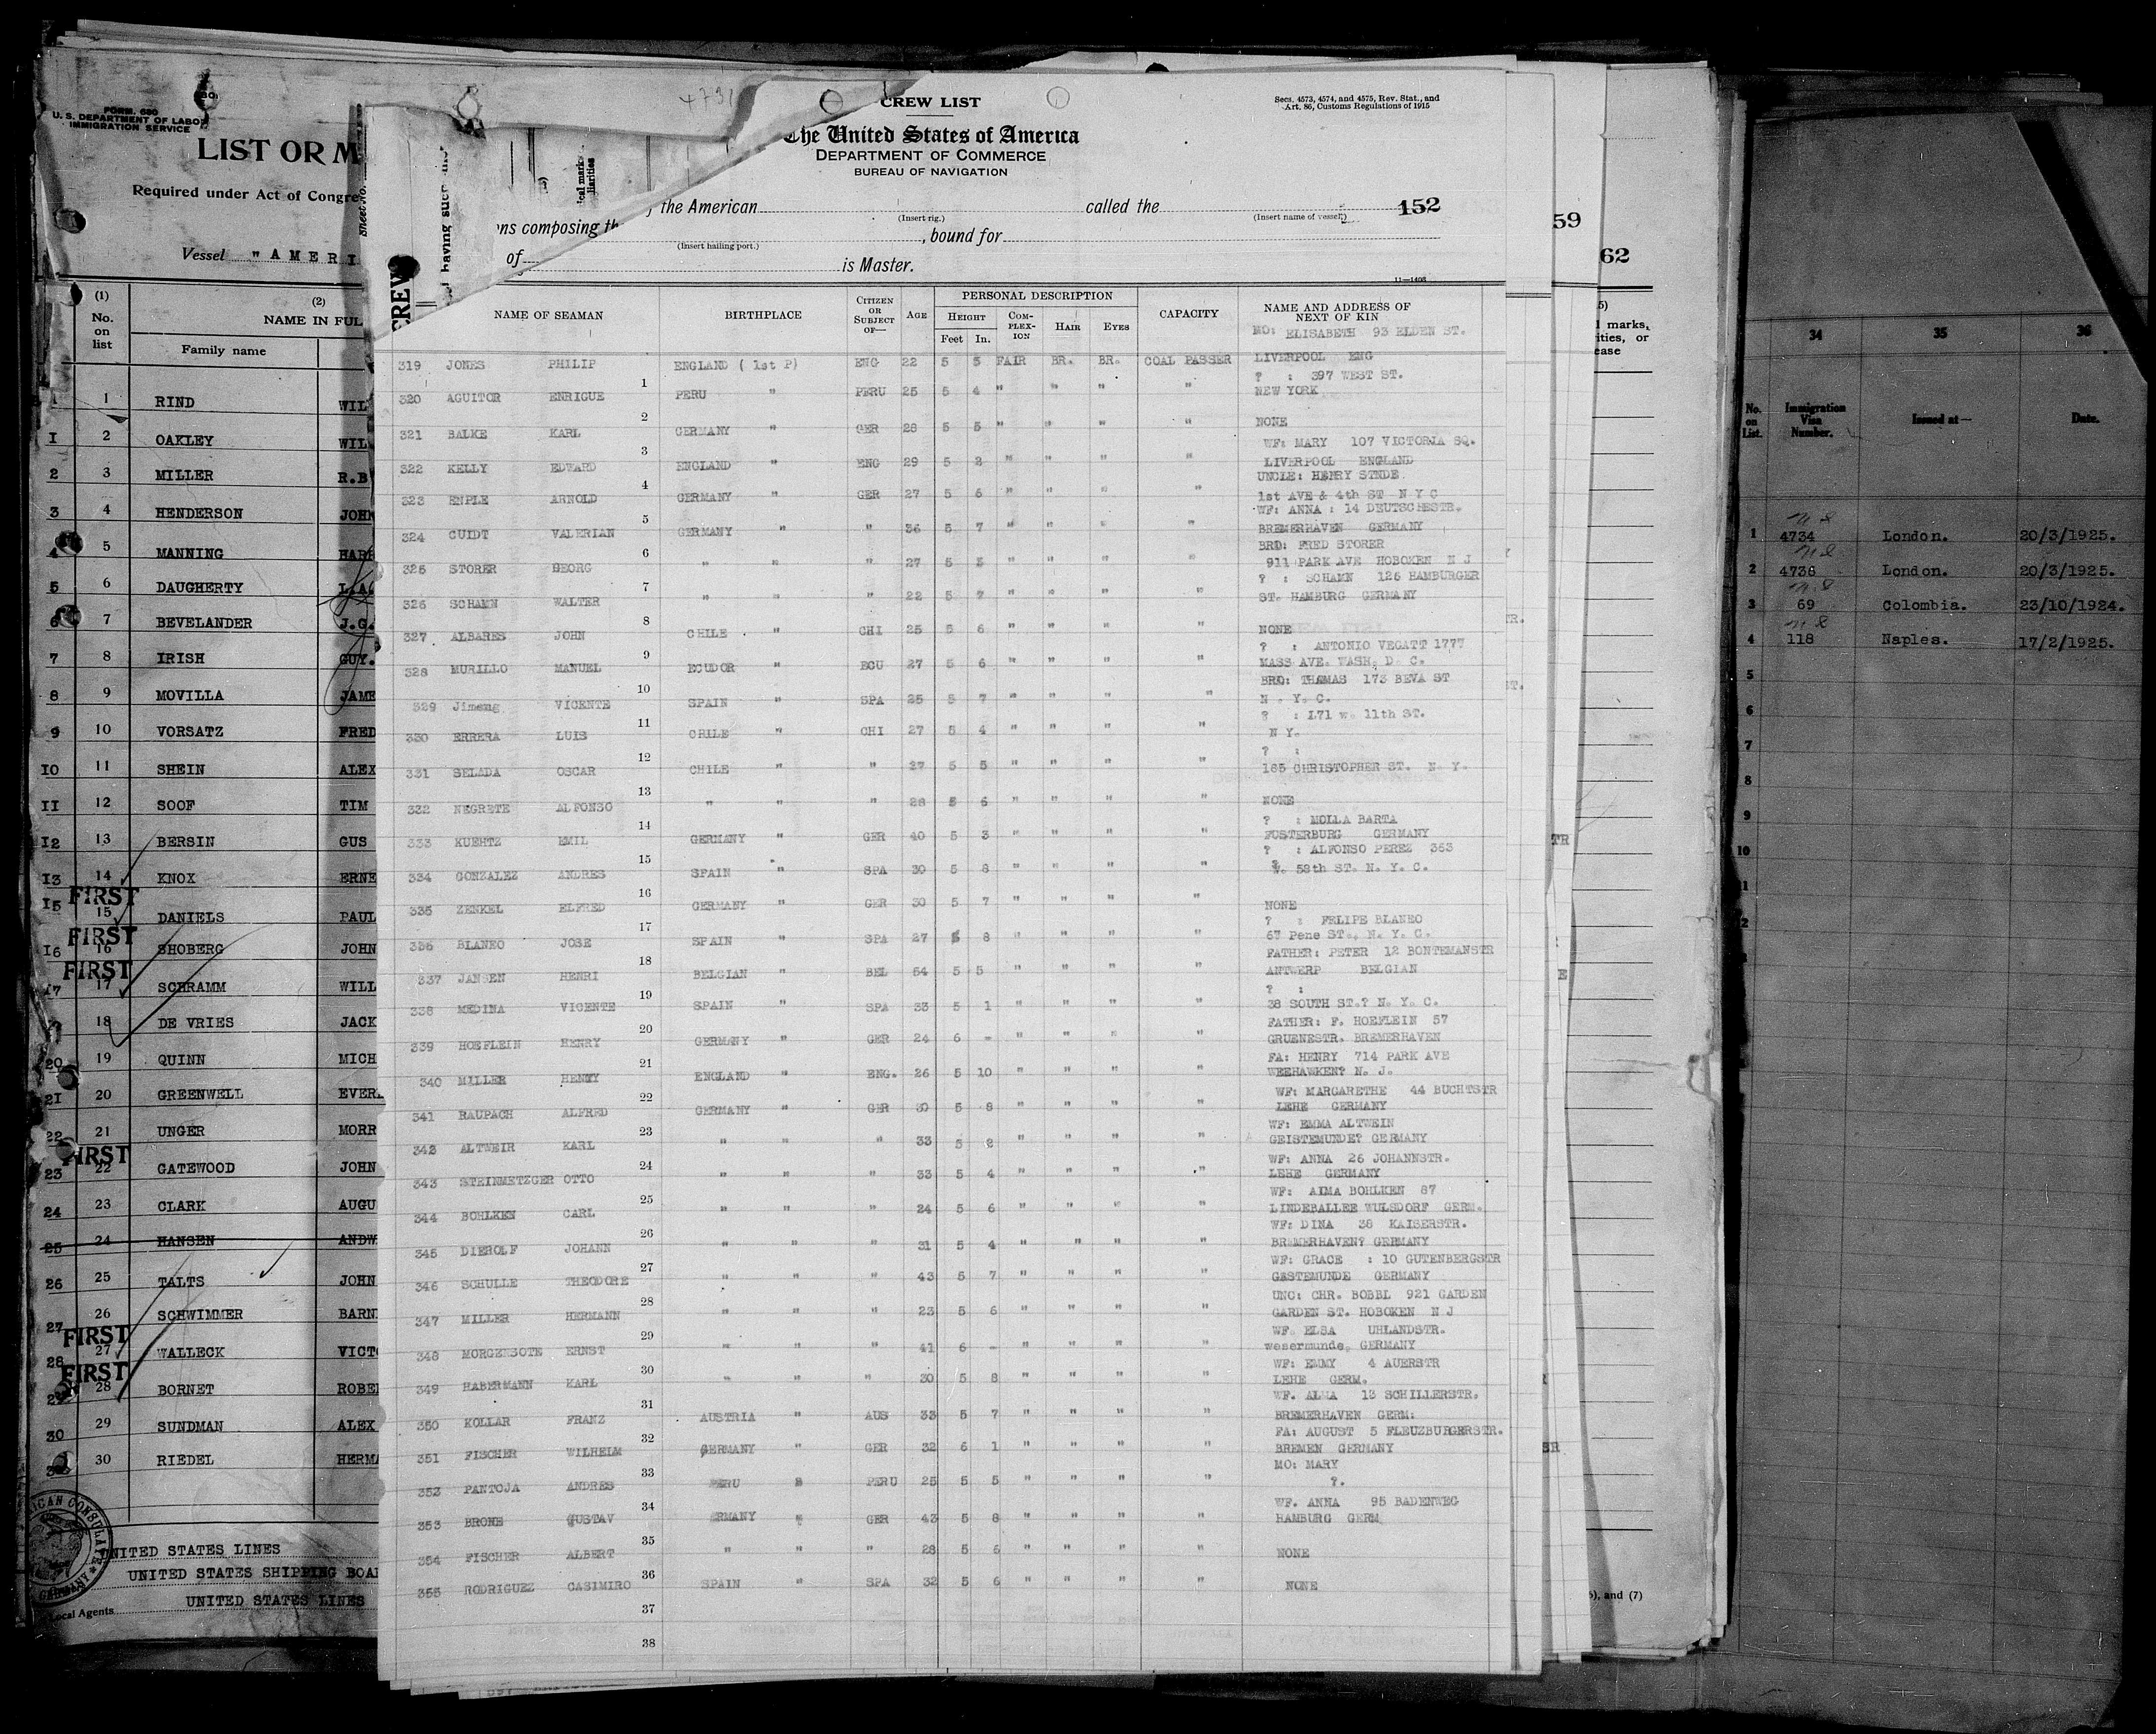 FORM. 680
U. S. DEPARTMENT OF LABOR
IMMIGRATION SERVICE
LIST OR M
Required under Act of Congre
Vessel "AMERI
(1) (2)
No. on list
NAME IN FUL
Family name
1 RIND WIL
I 2 OAKLEY WIL
2 3 MILLER R.B
3 4 HENDERSON JOHN
4 5 MANNING HARR
5 6 DAUGHERTY L.A.
6 7 BEVELANDER J.G.
7 8 IRISH GUY.
8 9 MOVILLA JAME
9 10 VORSATZ FRED
IO 11 SHEIN ALEX
II 12 SOOF TIM
I2 13 BERSIN GUS
I3 14 KNOX ERNE
FIRST
I5 15 DANIELS PAUL
FIRST
I6 16 SHOBERG JOHN
FIRST
I7 17 SCHRAMM WILL
18 DE VRIES JACK
20 19 QUINN MICH
21 20 GREENWELL EVER
22 21 UNGER MORR
FIRST
23 22 GATEWOOD JOHN
24 23 CLARK AUGU
25 24 HANSEN ANDW
26 25 TALTS JOHN
27 26 SCHWIMMER BARN
FIRST
28 27 WALLECK VICTO
FIRST
28 BORNET ROBE
30 29 SUNDMAN ALEX
30 RIEDEL HERMA
UNITED STATES LINES
UNITED STATES SHIPPING BOA
UNITED STATES LINES
Local Agents
ICAN CONSULATE
GERMANY
Sheet No.
CREW
having such
cal marks
liarities
4731
CREW LIST
Secs. 4573, 4574, and 4575, Rev. Stat., and
Art. 86, Customs Regulations of 1915
The United States of America
DEPARTMENT OF COMMERCE
BUREAU OF NAVIGATION
ns composing th f the American (Insert rig.) called the (Insert name of vessel) 152
(Insert hailing port.) , bound for
of is Master.
11—1406
NAME OF SEAMAN BIRTHPLACE CITIZEN OR SUBJECT OF— AGE PERSONAL DESCRIPTION CAPACITY NAME AND ADDRESS OF NEXT OF KIN
HEIGHT COMPLEXION HAIR EYES
Feet In.
MO: ELISABETH 93 ELDEN ST.
319 JONES PHILIP 1 ENGLAND ( 1st P) ENG 22 5 5 FAIR BR. BR. COAL PASSER LIVERPOOL ENG
? : 397 WEST ST.
320 AGUITOR ENRIGUE 2 PERU " PERU 25 5 4 " " " " NEW YORK
321 BALKE KARL 3 GERMANY " GER 28 5 5 " " " " NONE
WF: MARY 107 VICTORIA SQ.
322 KELLY EDWARD 4 ENGLAND " ENG 29 5 2 " " " " LIVERPOOL ENGLAND
UNCLE: HENRY STNDE
323 ENPLE ARNOLD 5 GERMANY " GER 27 5 6 " " " " 1st AVE & 4th ST N Y C
WF: ANNA : 14 DEUTSCHESTR.
324 CUIDT VALERIAN 6 GERMANY " " 36 5 7 " " " " BREMERHAVEN GERMANY
BRD: FRED STORER
325 STORER GEORG 7 " " " 27 5 5 " " " " 911 PARK AVE HOBOKEN N J
? : SCHAMN 126 HAMBURGER
326 SCHAMN WALTER 8 " " " 22 5 7 " " " " ST. HAMBURG GERMANY
327 ALBARES JOHN 9 CHILE " CHI 25 5 6 " " " " NONE
? : ANTONIO VEGATT 1777
328 MURILLO MANUEL 10 ECUDOR " ECU 27 5 6 " " " " MASS AVE. WASH. D. C.
BRD: THAMAS 173 BEVA ST
329 Jimeng VICENTE 11 SPAIN " SPA 25 5 7 " " " " N . Y. C.
? : 171 w. 11th ST.
330 ERRERA LUIS 12 CHILE " CHI 27 5 4 " " " " N Y.
? :
331 SELADA OSCAR 13 CHILE " " 27 5 5 " " " " 165 CHRISTOPHER ST. N. Y.
332 NEGRETE ALFONSO 14 " " " 28 5 6 " " " " NONE
? : MOLLA BARTA
333 KUEHTZ EMIL 15 GERMANY " GER 40 5 3 " " " " FOSTERBURG GERMANY
? : ALFONSO PEREZ 363
334 GONZALEZ ANDRES 16 SPAIN " SPA 30 5 8 " " " " W. 58th ST. N. Y. C.
335 ZENKEL ELFRED 17 GERMANY " GER 30 5 7 " " " " NONE
? : FELIPE BLANEO
336 BLANEO JOSE 18 SPAIN " SPA 27 5 8 " " " " 67 Pene ST., N. Y. C.
FATHER: PETER 12 BONTEMANSTR
337 JANSEN HENRI 19 BELGIAN " BEL 54 5 5 " " " " ANTWERP BELGIAN
? :
338 MEDINA VICENTE 20 SPAIN " SPA 33 5 1 " " " " 38 SOUTH ST.? N. Y. C.
FATHER: F. HOEFLEIN 57
339 HOEFLEIN HENRY 21 GERMANY " GER 24 6 - " " " " GRUENESTR. BREMERHAVEN
FA: HENRY 714 PARK AVE
340 MILLER HENTY 22 ENGLAND " ENG. 26 5 10 " " " " WEEHAWKEN? N. J.
WF: MARGARETHE 44 BUCHTSTR
341 RAUPACH ALFRED 23 GERMANY " GER 30 5 8 " " " " LEHE GERMANY
WF: EMMA ALTWEIN
342 ALTWEIR KARL 24 " " " 33 5 2 " " " " GEISTEMUNDE? GERMANY
WF: ANNA 26 JOHANNSTR.
343 STEINMETZGER OTTO 25 " " " 33 5 4 " " " " LEHE GERMANY
WF: AIMA BOHLKEN 87
344 BOHLKEN CARL 26 " " " 24 5 6 " " " " LINDEBALLEE WULSDORF GERM.
WF: DINA 38 KAISERSTR.
345 DIEROLF JOHANN 27 " " " 31 5 4 " " " " BREMERHAVEN? GERMANY
WF: GRACE : 10 GUTENBERGSTR
346 SCHULLE THEODORE 28 " " " 43 5 7 " " " " GASTEMUNDE GERMANY
UNC: CHR. BOBBL 921 GARDEN
347 MILLER HERMANN 29 " " " 23 5 6 " " " " GARDEN ST. HOBOKEN N J
WF. ELSA UHLANDSTR.
348 MORGENSOTE ERNST 30 " " " 41 6 - " " " " wesermunde, GERMANY
WF: EMMY 4 AUERSTR
349 HABERMANN KARL 31 " " " 30 5 8 " " " " LEHE GERM.
WF. ALMA 13 SCHILLERSTR.
350 KOLLAR FRANZ 32 AUSTRIA " AUS 33 5 7 " " " " BREMERHAVEN GERM:
FA: AUGUST 5 FLEUZBURGERSTR.
351 FISCHER WILHEIM 33 GERMANY " GER 32 6 1 " " " " BREMEN GERMANY
MO: MARY
352 PANTOJA ANDRES 34 PERU " PERU 25 5 5 " " " " ?.
WF. ANNA 95 BADENWEG
353 BRONE GUSTAV 35 ERMANY " GER 43 5 8 " " " " HAMBURG GERM
354 FISCHER ALBERT 36 " " " 28 5 6 " " " " NONE
355 RODRIGUEZ CASIMIRO 37 SPAIN " SPA 32 5 6 " " " " NONE
38
59
62
5)
l marks,
ities, or
ease
TR.
ST.
TR
E
SR
6), and (7)
34 35 36
No. on List. Immigration Visa Number. Issued at— Date.
1 4734 London. 20/3/1925.
2 4736 London. 20/3/1925.
3 69 Colombia. 23/10/1924.
4 118 Naples. 17/2/1925.
5
6
7
8
9
10